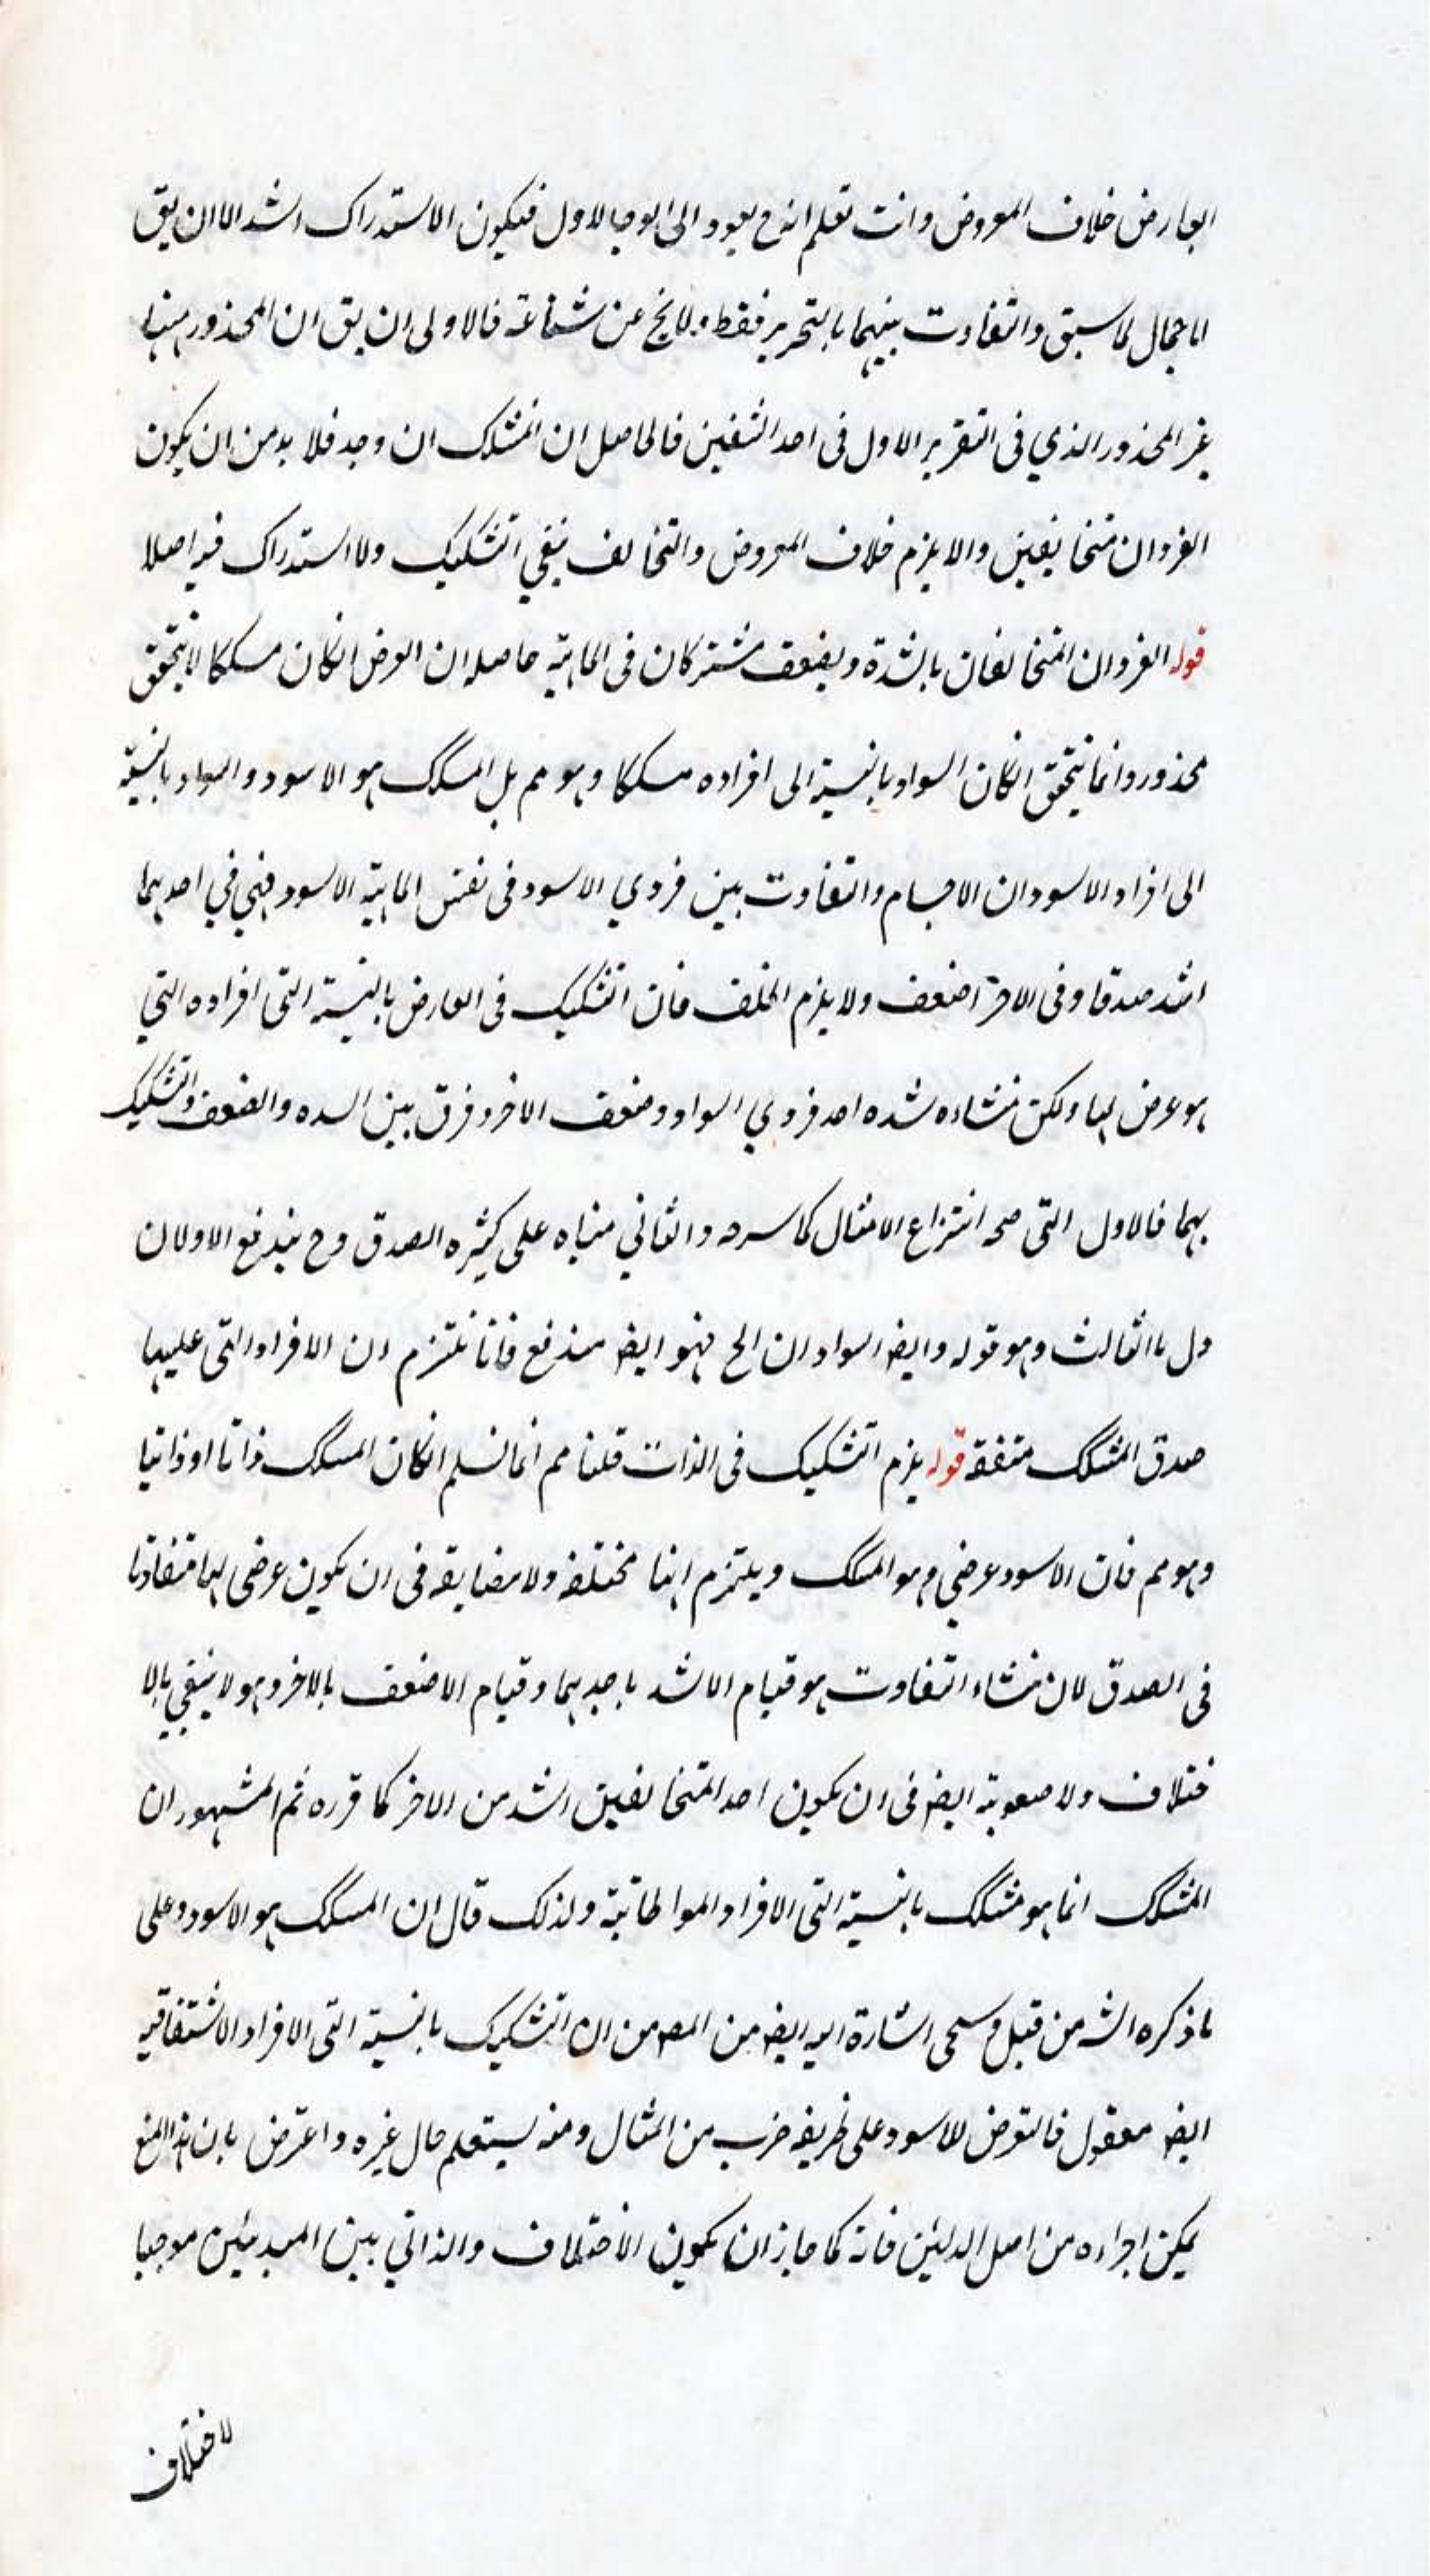 العارض خلاف المعروض وانت تعلم انه ح يعود الى الوجه الاول فيكون الاستدراك اشد الا ان يق
لاجمال لما سبق والتفاوت بينهما بالتحرير فقط ولا يخ عن شناعة فالاولى ان يق ان المحذور ههنا
غير المحذور الذي فى التقرير الاول فى احد الشقين فالحاصل ان المشكك ان وجد فلا بد من ان يكون
الفردان متخالفين والا يلزم خلاف المعروض والتخالف ينفي التشكيك ولا استدراك فيه اصلا
قوله الفردان المتخالفان بالشدة وبضعف مشتركان فى الماهية حاصله ان العرض انكان مسككا لا يتحقق
محذور وانما يتحقق انكان السواد بالنسبة الى افراده مسككا وهو مم بل المسكك هو الاسود والسواد بالنسبة
الى افراد الاسود ان الاجسام والتفاوت بين فردي الاسود فى نفس الماهية الاسود فهي في احدهما
اشد صدقا وفى الاخر اضعف ولا يلزم الخلف فان التشكيك فى العارض بالنسبة التى افراده التي
هو عرض لها ولكن منشاءه شده احد فردي السواد وضعف الاخر وفرق بين السده والضعف والتشكيك
بهما فالاول التى صحه انتزاع الامثال كما سرحه والثاني مبناه على كثيره الصدق وح يندفع الاولان
ول ما الثالث وهو قوله وايضا السوادان الخ فهو ايضا مندفع فانا نلتزم ان الافراد التى عليها
صدق المشكك متفقة قوله يلزم التشكيك فى الذات قلنا مم انما نسلم انكان المسكك ذاتا او ذاتيا
وهو مم فان الاسود عرضي وهو المسكك ويلتزم انها مختلفه ولا مضايقه فى ان يكون عرضى لها متفاوتا
فى الصدق لان منشاء التفاوت هو قيام الاشد باحدهما وقيام الاضعف بالاخر وهو لا ينفي بالا
ختلاف ولا صعوبة ايضا فى ان يكون احد المتخالفين اشد من الاخر كما قرره ثم المشهور ان
المشكك انما هو مشكك بالنسبة التى الافراد المواطاتية ولذلك قال ان المسكك هو الاسود وعلى
ما ذكره الش من قبل وسيحى اشارة اليه ايضا من المص من ان التشكيك بالنسبة التى الافراد الاشتقاقيه
ايضا معقول فالتعرض للاسود على طريقه ضرب من المثال ومنه يستعلم حال غيره واعترض بان هذا المنع
يمكن اجراءه من اصل الدليلين فانه كما جاز ان يكون الاختلاف والذاتي بين المبدئين موجبا
لاختلاف